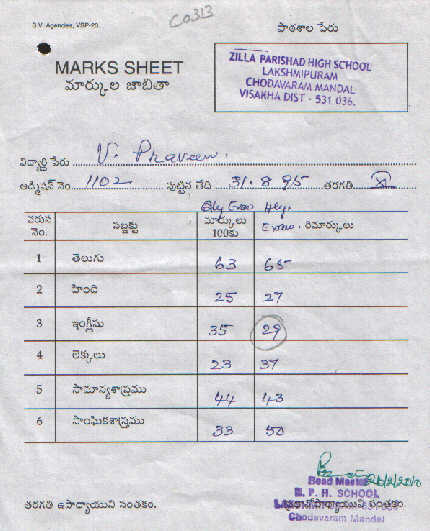 S.V. Agencies, VSP-20.
C0313
పాఠశాల పేరు
MARKS SHEET
మార్కుల జాబితా
ZILLA PARISHAD HIGH SCHOOL
LAKSHMIPURAM
CHODAVARAM MANDAL
VISAKHA DIST - 531 036.
విద్యార్థి పేరు V. Praveen.
అడ్మిషన్ నెం. 1102 పుట్టిన తేది 31.8.95 తరగతి X
Qly Exam Hly. Exam.
వరుస నెం. సబ్జెక్టు మార్కులు 100కు రిమార్కులు
1 తెలుగు 63 65
2 హింది 25 27
3 ఇంగ్లీషు 35 29
4 లెక్కలు 23 37
5 సామాన్యశాస్త్రము 44 43
6 సాంఘికశాస్త్రము 33 50
Head Master
Z. P. H. SCHOOL
ప్రధానోపాధ్యాయుని సంతకం.
తరగతి ఉపాధ్యాయుని సంతకం.
Chodavaram Mandal